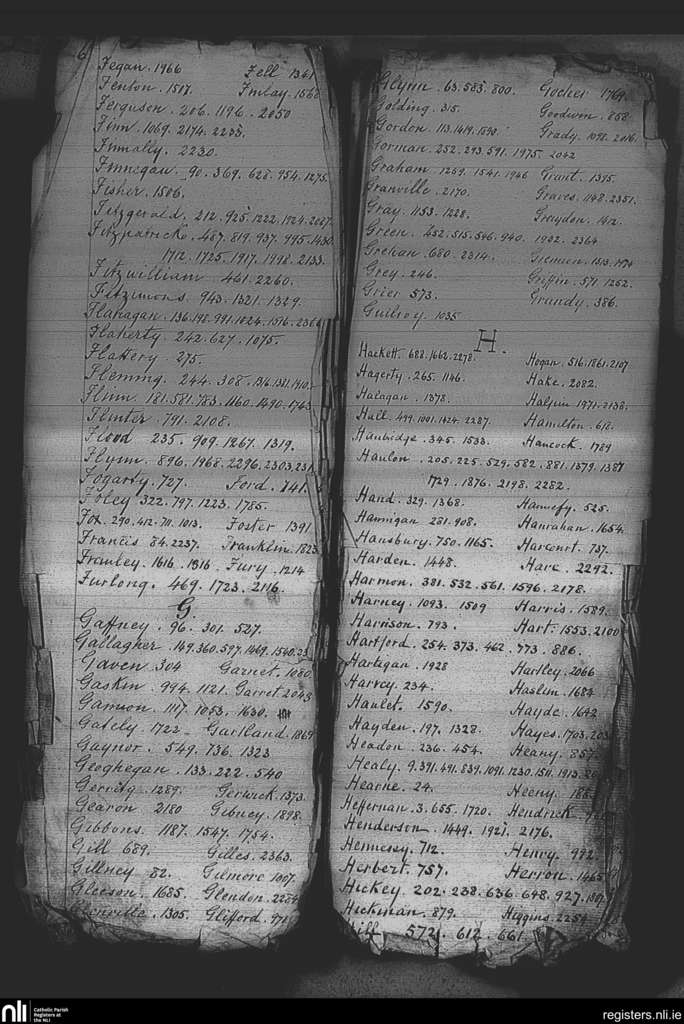 Fegan . 1966 Fell 1341
Fenton . 1517. Finlay . 1562
Ferguson . 206 . 1196 . 2050
Finn . 1069 . 2174 . 2238.
Finnally . 2230.
Finnegan . 90 . 369 . 628 . 954 . 1275.
Fisher . 1506.
Fitzgerald . 212 . 925 . 1222 . 1924 . 2027
Fitzpatrick . 487 . 819 . 937 . 995 . 1430
1712 . 1725 . 1917 . 1998 . 2133.
Fitzwilliam . 461 . 2260.
Fitzimons . 943 . 1321 . 1329.
Flanagan . 136 . 198 . 991 . 1024 . 1576 . 2366
Flaherty . 242 . 627 . 1075.
Flattery . 275.
Fleming . 244 . 308 . 1316 . 1381 . 1410.
Flinn . 181 . 581 . 783 . 1160 . 1490 . 1743
Flinter . 791 . 2108.
Flood 235 . 909 . 1267 . 1319.
Flynn . 896 . 1968 . 2296 . 2303
Fogarty . 727. Ford . 741
Foley 322 . 797 . 1223 . 1785.
Fox . 290 . 412 . 711 . 1013. Foster 1391
Francis 84 . 2237. Franklin . 1823
Frawley . 1616 . 1816 . Fury . 1214
Furlong . 469 . 1723 . 2116.
G
Gaffney . 96 . 301 . 527.
Gallagher . 149 . 360 . 597 . 1469 . 1540
Gaven 304 Garnet . 1080
Gaskin . 994 . 1121 . Garret . 2043
Gannon . 1117 . 1053 . 1630.
Gately . 1722 - Gartland . 1869
Gaynor . 549 . 736 . 1323
Geoghegan . 133 . 222 . 540
Gerrity . 1289. Gerwick . 1373
Gearon 2180 Gibney . 1898
Gibbons . 1187 . 1547 . 1754.
Gill 689. Gilles . 2363.
Gillney 82. Gilmore 1007
Gleeson . 1685. Glendon . 2284
Glenville . 1305. Glifford . 971
Glynn . 63 . 583 . 800. Gocher 1769
Golding . 315. Goodwin . 858
Gordon . 113 . 1419 . 1590. Grady . 1098 . 2016
Gorman . 252 . 293 . 591 . 1975 . 2042
Graham . 1269 . 1541 . 1946 Grant . 1395.
Granville . 2170. Graves . 1148 . 2351.
Gray . 1153 . 1228. Graydon . 1412.
Green . 452 . 515 . 546 . 940. 1932 . 2364
Grehan . 680 . 2314. 1513 . 1974
Grey . 246. Griffin . 571 . 1252.
Grier 573. Grundy . 386.
Guilroy . 1035
H.
Hackett . 688 . 1662 . 2278. Hogan . 516 . 1861 . 2107
Hagerty . 265 . 1146. Hake . 2082.
Halagan . 1378. Halpin 1971 . 2138.
Hall . 499 . 1001 . 1424 . 2287. Hamilton . 618.
Hanbidge . 345 . 1533. Hancock . 1789
Hanlon . 205 . 225 . 529 . 582 . 881 . 1379 . 1387
1729 . 1876 . 2198 . 2282.
Hand . 329 . 1368. Hannefy . 525.
Hannigan 281 . 908. Hanrahan . 1654.
Hansbury . 750 . 1165. Harcourt . 737.
Harden . 1448. Hare . 2292.
Harmon . 381 . 532 . 561 . 1596 . 2178.
Harney . 1093. 1509 Harris . 1589.
Harrison . 793. Hart . 1553 . 2100
Hartford . 254 . 373 . 462 . 773 . 886.
Hartigan . 1928 Hartley . 2066
Harvey . 234. Haslim . 1684
Haulet . 1590. Hayde . 1642
Hayden . 197 . 1328. Hayes . 1703
Headon . 236 . 454. Heany . 857
Healy . 9 . 391 . 491 . 839 . 1091 . 1230 . 1511 . 1913
Hearne . 24. Heeny
Heffernan . 3 . 655 . 1720. Hendrick
Henderson . 1449 . 1921 . 2176.
Hennessy . 712. Henry . 992
Herbert . 757. Herron . 1465
Hickey . 202 . 238 . 636 . 648 . 927
Hickman . 879. Higgins . 2254
Hill 572 . 612 . 661
nli Catholic Parish
Registers at
the NLI
registers.nli.ie